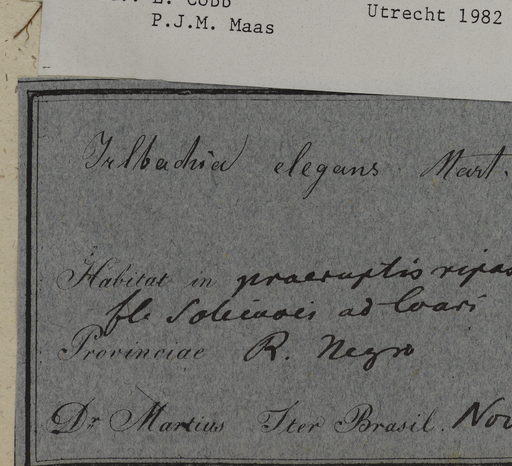 L. Cobb
P.J.M. Maas
Utrecht 1982
Irlbachia elegans Mart.
Habitat in praeruptis ripas
fl. Solimoes ad Coari
Provinciae R. Negro
Dr Martius Iter Brasil. Nov